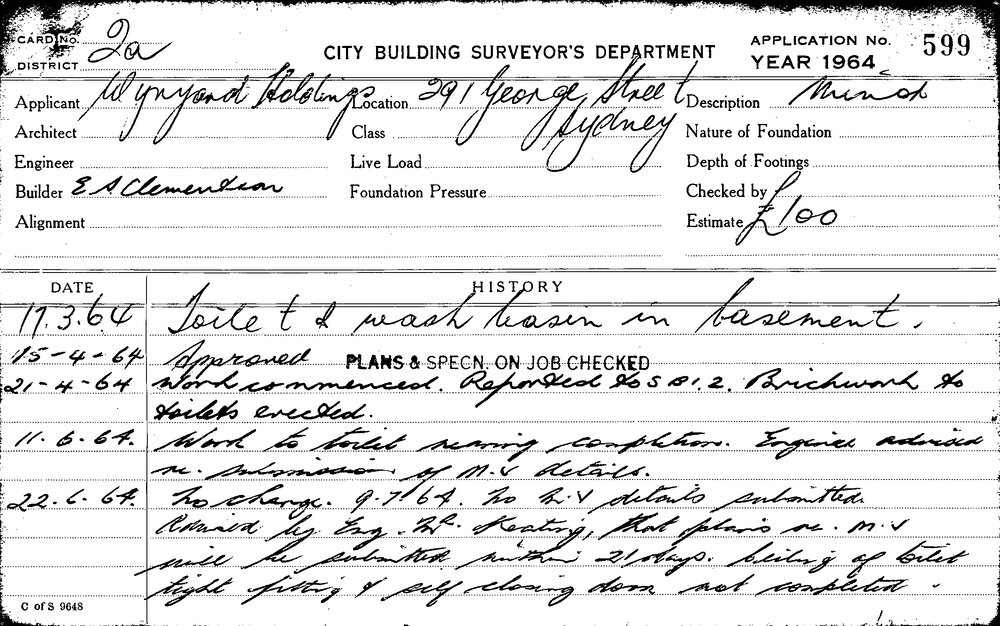 CARD No. 2a
DISTRICT
CITY BUILDING SURVEYOR'S DEPARTMENT
APPLICATION No. 599
YEAR 1964
Applicant Wynyard Holdings Location 291 George Street Sydney Description Minor
Architect Class Nature of Foundation
Engineer Live Load Depth of Footings
Builder E A Clementson Foundation Pressure Checked by
Alignment Estimate £100
DATE HISTORY
17.3.64 Toilet & wash basin in basement.
15-4-64 Approved PLANS & SPECN. ON JOB CHECKED
21-4-64 Work commenced. Reported to S B I. 2. Brickwork to
toilets erected.
11.6.64. Work to toilet nearing completion. Engineer advised
re. submission of M.V details.
22.6.64. No change. 9-7-64. No M.V details submitted.
Advised by Eng. Mr. Keating, that plans re. M.V
will be submitted within 21 days. Ceiling of toilet
tight fitting & self closing door not completed.
C of S 9648